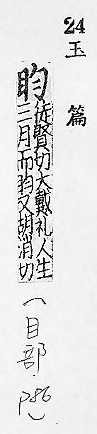 24
玉篇
盷
徒賢切大戴礼人生
三月而盷又胡涓切
(目部
P86)